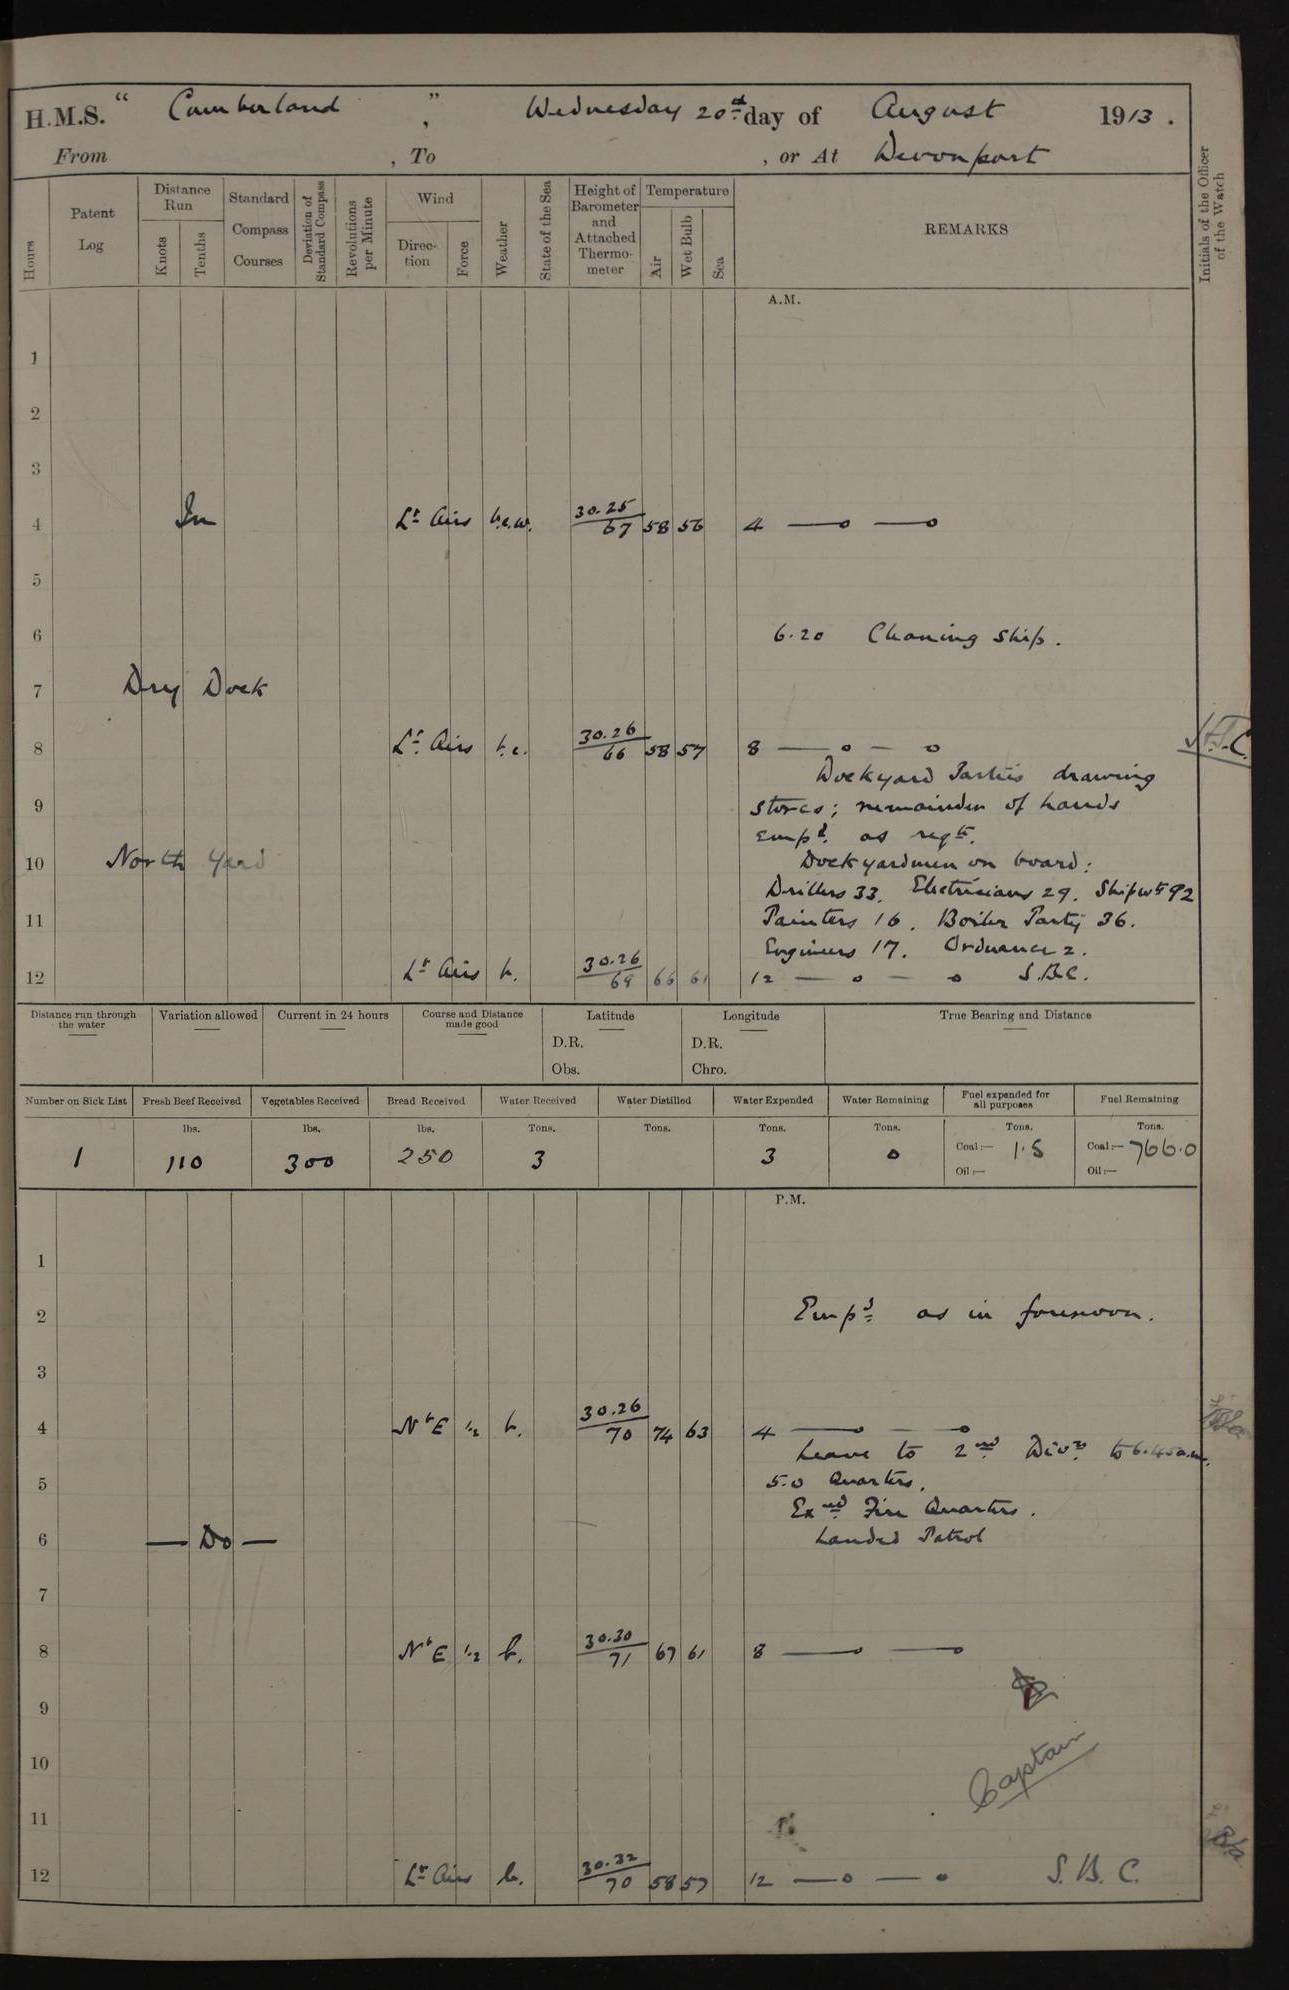 H.M.S. " Cumberland ", Wednesday 20th day of August 1913.
From , To , or At Devonport
Hours
Patent Log
Distance Run
Knots
Tenths
Standard Compass Courses
Deviation of Standard Compass
Revolutions per Minute
Wind
Direction
Force
Weather
State of the Sea
Height of Barometer and Attached Thermometer
Temperature
Air
Wet Bulb
Sea
REMARKS
Initials of the Officer of the Watch
A.M.
1
2
3
4 In Lt Airs b.c.w. 30.25 67 58 56 4 —o —o
5
6 6.20 Cleaning Ship.
7 Dry Dock
8 Lt Airs b.c. 30.26 66 58 57 8 — o — o
Dockyard Parties drawing
9 stores; remainder of hands
Empd. as reqte.
10 North Yard Dockyardmen on board:
Drillers 33. Electricians 29. Shipwts 92
11 Painters 16. Boiler Party 36.
Engineers 17. Ordnance 2.
12 Lt Airs b. 30.26 69 66 61 12 — o — o S.B.C.
Distance run through the water
Variation allowed
Current in 24 hours
Course and Distance made good
Latitude
D.R.
Obs.
Longitude
D.R.
Chro.
True Bearing and Distance
Number on Sick List Fresh Beef Received Vegetables Received Bread Received Water Received Water Distilled Water Expended Water Remaining Fuel expended for all purposes Fuel Remaining
lbs. lbs. lbs. Tons. Tons. Tons. Tons. Tons. Tons.
1 110 300 250 3 3 0 Coal:— 1.5 Coal:— 766.0
Oil:— Oil:—
P.M.
1
2 Empd as in forenoon.
3
4 NbE 1-2 b. 30.26 70 74 63 4 —o —o
Leave to 2nd Divn to 6.45 a.m.
5 5.0 Quarters.
Exned Fire Quarters.
6 — Do — Landed Patrol
7
8 NbE 1-2 b. 30.30 71 67 61 8 —o —o
9
10 Captain
11
12 Lt Airs b. 30.32 70 58 57 12 —o —o S.B.C.